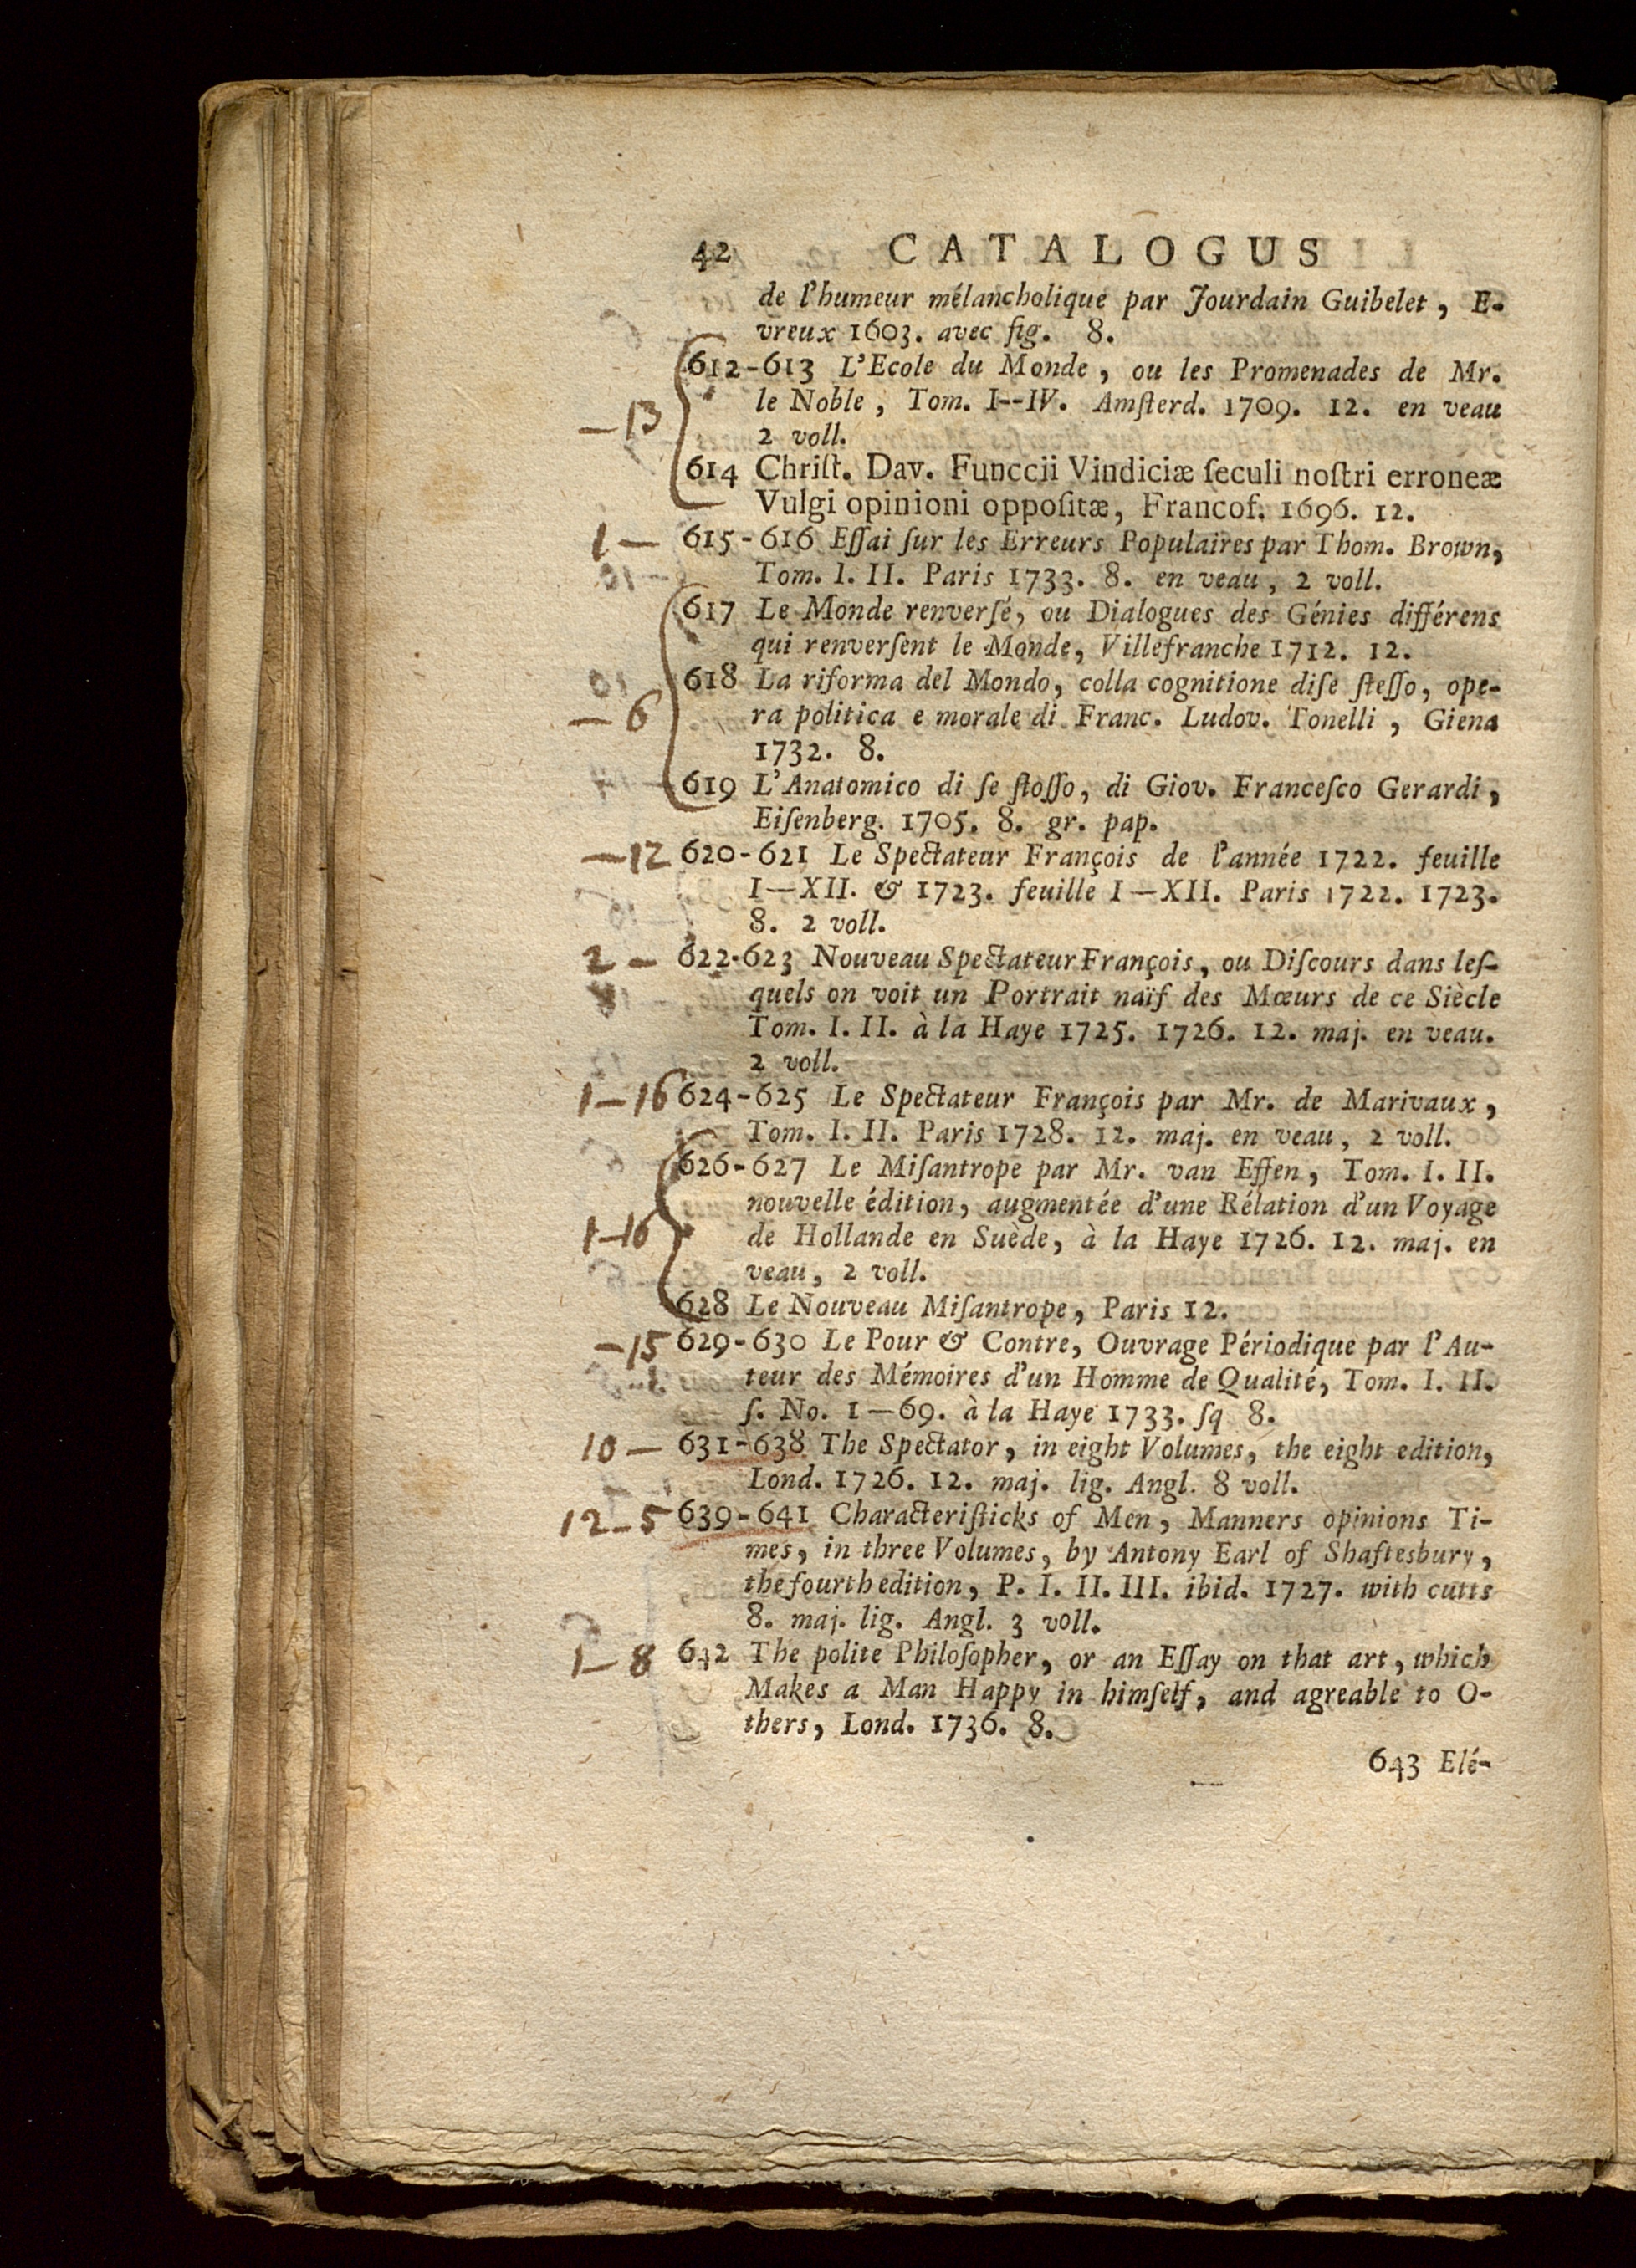 42 CATALOGUS
de l'humeur mélancholique par Jourdain Guibelet, E-
vreux 1603. avec fig. 8.
612-613 L'Ecole du Monde, ou les Promenades de Mr.
le Noble, Tom. I--IV. Amſterd. 1709. 12. en veau
— 13
2 voll.
614 Chriſt. Dav. Funccii Vindiciæ ſeculi noſtri erroneæ
Vulgi opinioni oppoſitæ, Francof. 1696. 12.
1 — 615-616 Eſſai ſur les Erreurs Populaires par Thom. Brown,
Tom. I. II. Paris 1733. 8. en veau, 2 voll.
617 Le Monde renverſé, ou Dialogues des Génies différens
qui renverſent le Monde, Villefranche 1712. 12.
618 La riforma del Mondo, colla cognitione diſe ſteſſo, ope-
— 6 ra politica e morale di Franc. Ludov. Tonelli, Giena
1732. 8.
619 L'Anatomico di ſe ſtoſſo, di Giov. Franceſco Gerardi,
Eiſenberg. 1705. 8. gr. pap.
—12 620-621 Le Spectateur François de l'année 1722. feuille
I—XII. & 1723. feuille I—XII. Paris 1722. 1723.
8. 2 voll.
2 — 622-623 Nouveau Spectateur François, ou Diſcours dans leſ-
quels on voit un Portrait naïf des Mœurs de ce Siècle
Tom. I. II. à la Haye 1725. 1726. 12. maj. en veau.
2 voll.
1—16 624-625 Le Spectateur François par Mr. de Marivaux,
Tom. I. II. Paris 1728. 12. maj. en veau, 2 voll.
626-627 Le Miſantrope par Mr. van Effen, Tom. I. II.
nouvelle édition, augmentée d'une Rélation d'un Voyage
1—16 de Hollande en Suède, à la Haye 1726. 12. maj. en
veau, 2 voll.
628 Le Nouveau Miſantrope, Paris 12.
—15 629-630 Le Pour & Contre, Ouvrage Périodique par l'Au-
teur des Mémoires d'un Homme de Qualité, Tom. I. II.
ſ. No. 1—69. à la Haye 1733. ſq 8.
10 — 631-638 The Spectator, in eight Volumes, the eight edition,
Lond. 1726. 12. maj. lig. Angl. 8 voll.
12—5 639-641 Characteriſticks of Men, Manners opinions Ti-
mes, in three Volumes, by Antony Earl of Shaftesbury,
the fourth edition, P. I. II. III. ibid. 1727. with cutts
8. maj. lig. Angl. 3 voll.
1—8 642 The polite Philoſopher, or an Eſſay on that art, which
Makes a Man Happy in himſelf, and agreable to O-
thers, Lond. 1736. 8.
643 Elé-